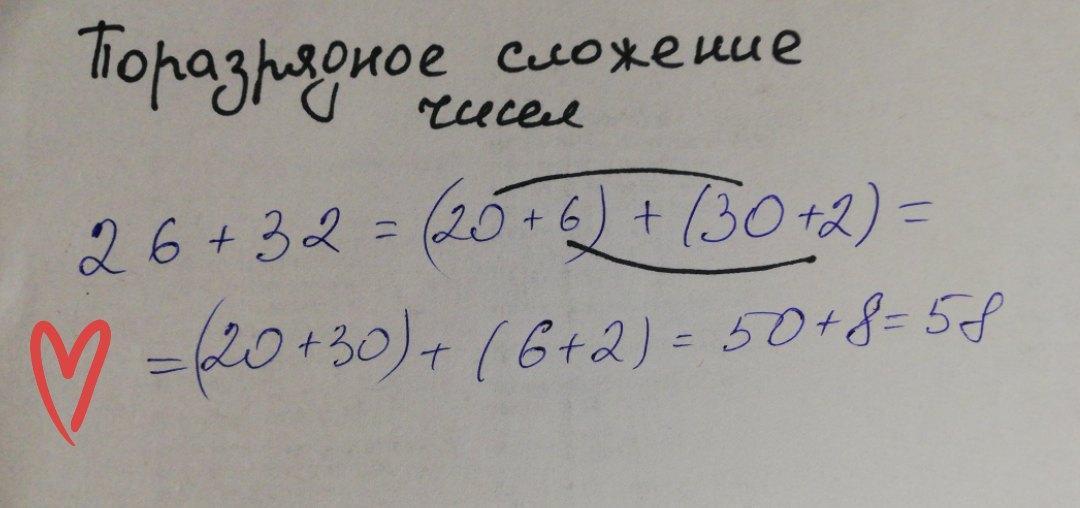 Поразрядное сложение
чисел
26 + 32 = (20 + 6) + (30 + 2) =
= (20 + 30) + (6 + 2) = 50 + 8 = 58